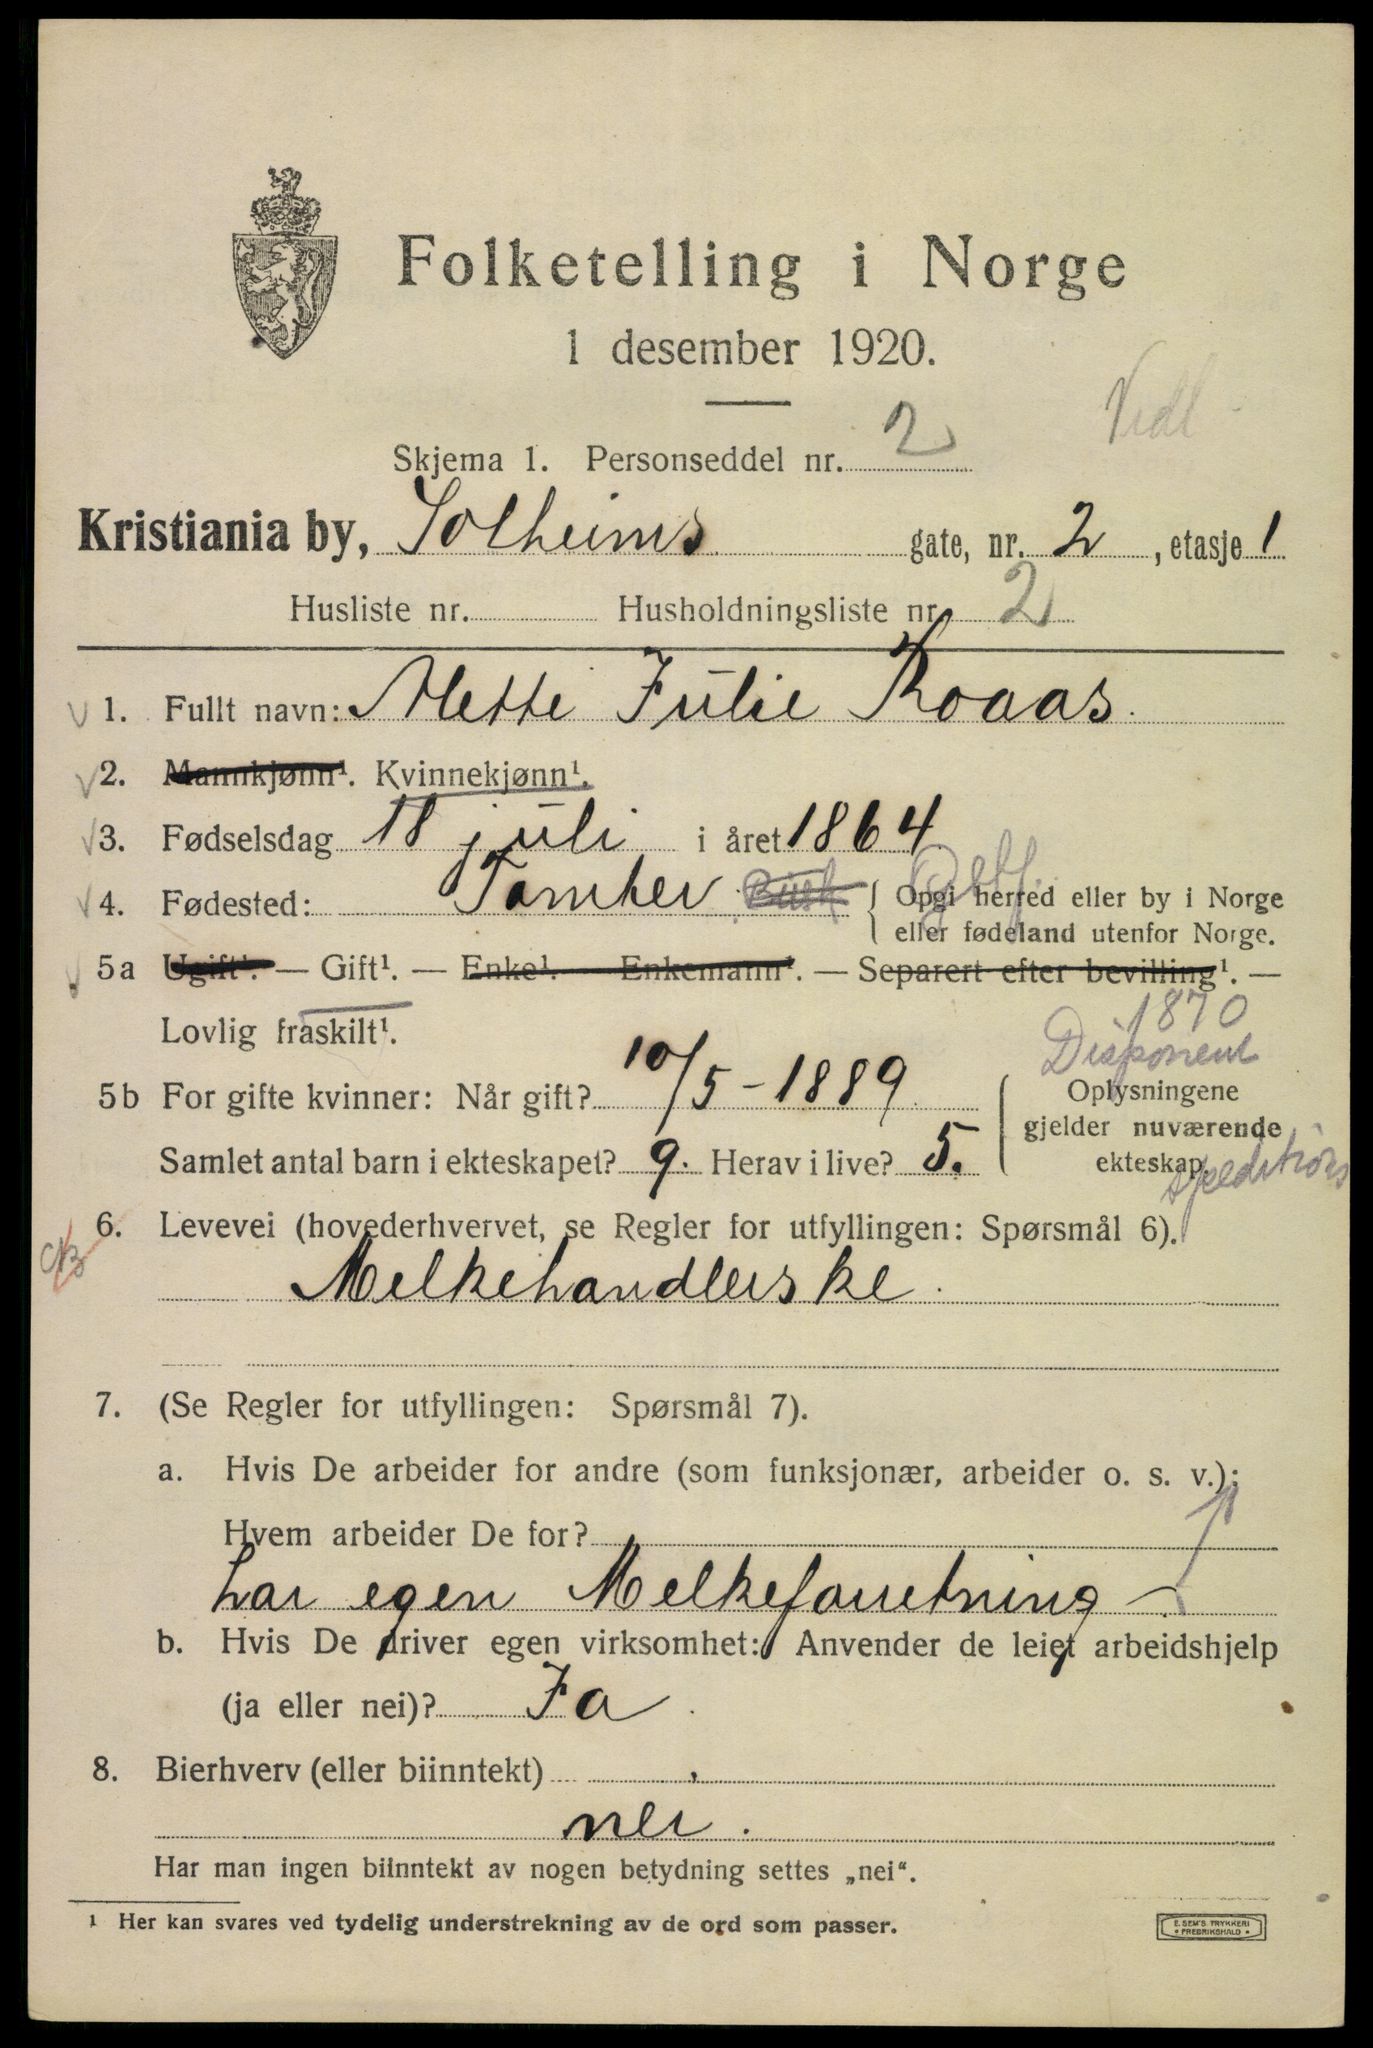 Folketelling i Norge
1 desember 1920.
Skjema 1. Personseddel nr. 2
Kristiania by, Solheims gate, nr. 2, etasje 1
Husliste nr. Husholdningsliste nr. 2
1. Fullt navn: Mette Julie Roaas.
2. Mannkjønn¹. Kvinnekjønn¹.
3. Fødselsdag 18 juli i året 1864
4. Fødested: Tomter Busk { Opgi herred eller by i Norge
eller fødeland utenfor Norge.
5a Ugift¹. — Gift¹. — Enke¹. Enkemann¹. — Separert efter bevilling¹. —
Lovlig fraskilt¹.
1870
Disponent
5b For gifte kvinner: Når gift? 10/5 - 1889.
Samlet antal barn i ekteskapet? 9. Herav i live? 5.
Oplysningene
gjelder nuværende
ekteskap.
spedition
6. Levevei (hovederhvervet, se Regler for utfyllingen: Spørsmål 6).
Melkehandlerske.
7. (Se Regler for utfyllingen: Spørsmål 7).
a. Hvis De arbeider for andre (som funksjonær, arbeider o. s. v.):
Hvem arbeider De for?
har egen Melkeforretning -
b. Hvis De driver egen virksomhet: Anvender de leiet arbeidshjelp
(ja eller nei)? Ja.
8. Bierhverv (eller biinntekt)
nei.
Har man ingen biinntekt av nogen betydning settes „nei“.
¹ Her kan svares ved tydelig understrekning av de ord som passer.
E. SEM'S TRYKKERI
• FREDRIKSHALD •